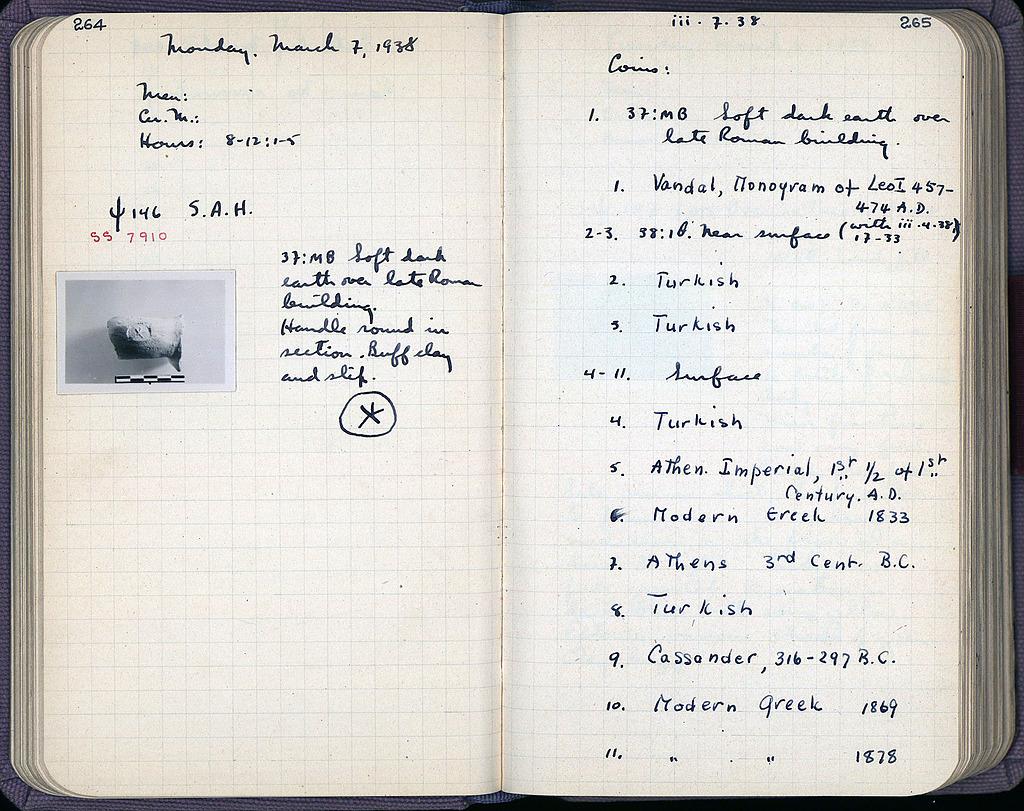 264
Monday. March 7, 1938
Men:
Cu. M.:
Hours: 8-12:1-5
ψ 146 S.A.H.
SS 7910
37:MB Soft dark
earth over late Roman
building.
Handle round in
section. Buff clay
and slip.
iii. 7. 38
265
Coins:
1. 37:MB Soft dark earth over
late Roman building.
1. Vandal, Monogram of Leo I 457-
474 A.D.
2-3. 38: Near surface (with iii.4.38)
17-33
2. Turkish
3. Turkish
4-11. Surface
4. Turkish
5. Athen. Imperial, 1st 1/2 of 1st
Century. A.D.
6. Modern Greek 1833
7. Athens 3rd Cent. B.C.
8. Turkish
9. Cassander, 316-297 B.C.
10. Modern Greek 1869
11. " " 1878